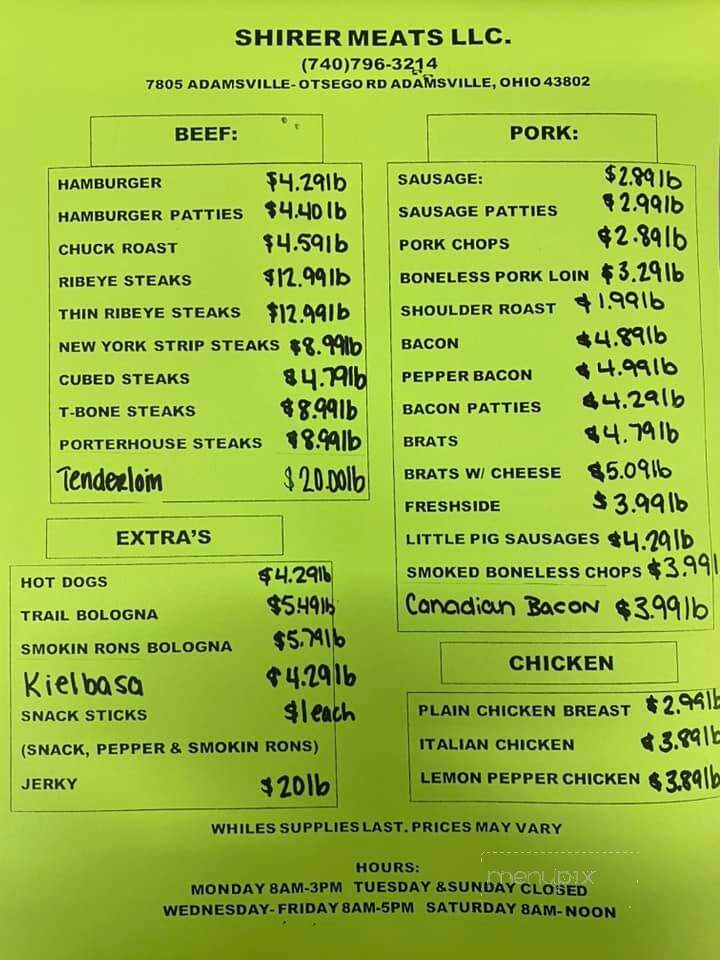 SHIRER MEATS LLC.
(740)796-3214
7805 ADAMSVILLE- OTSEGO RD ADAMSVILLE, OHIO 43802
BEEF:
HAMBURGER $4.29lb
HAMBURGER PATTIES $4.40lb
CHUCK ROAST $4.59lb
RIBEYE STEAKS $12.99lb
THIN RIBEYE STEAKS $12.99lb
NEW YORK STRIP STEAKS $8.99lb
CUBED STEAKS $4.79lb
T-BONE STEAKS $8.99lb
PORTERHOUSE STEAKS $8.99lb
Tenderloin $20.00lb
EXTRA'S
HOT DOGS $4.29lb
TRAIL BOLOGNA $5.49lb
SMOKIN RONS BOLOGNA $5.79lb
Kielbasa $4.29lb
SNACK STICKS $1each
(SNACK, PEPPER & SMOKIN RONS)
JERKY $20lb
PORK:
SAUSAGE: $2.89lb
SAUSAGE PATTIES $2.99lb
PORK CHOPS $2.89lb
BONELESS PORK LOIN $3.29lb
SHOULDER ROAST $1.99lb
BACON $4.89lb
PEPPER BACON $4.99lb
BACON PATTIES $4.29lb
BRATS $4.79lb
BRATS W/ CHEESE $5.09lb
FRESHSIDE $3.99lb
LITTLE PIG SAUSAGES $4.29lb
SMOKED BONELESS CHOPS $3.99l
Canadian Bacon $3.99lb
CHICKEN
PLAIN CHICKEN BREAST $2.99lb
ITALIAN CHICKEN $3.89lb
LEMON PEPPER CHICKEN $3.89lb
WHILES SUPPLIES LAST. PRICES MAY VARY
HOURS:
MONDAY 8AM-3PM TUESDAY &SUNDAY CLOSED
WEDNESDAY- FRIDAY 8AM-5PM SATURDAY 8AM- NOON
menupix